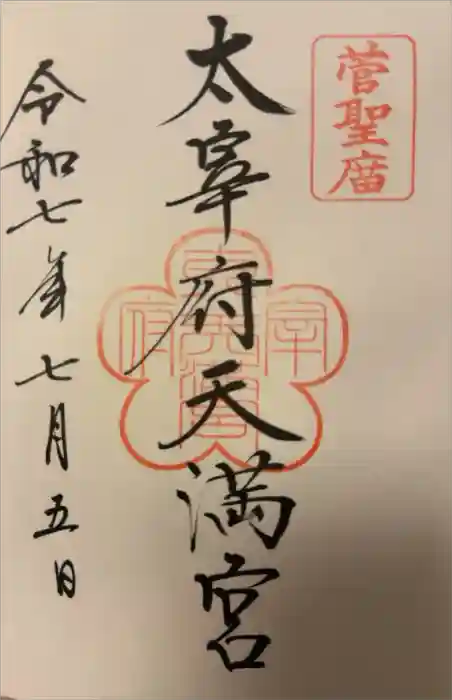 菅聖庿
太宰府天満宮
令和七年七月五日